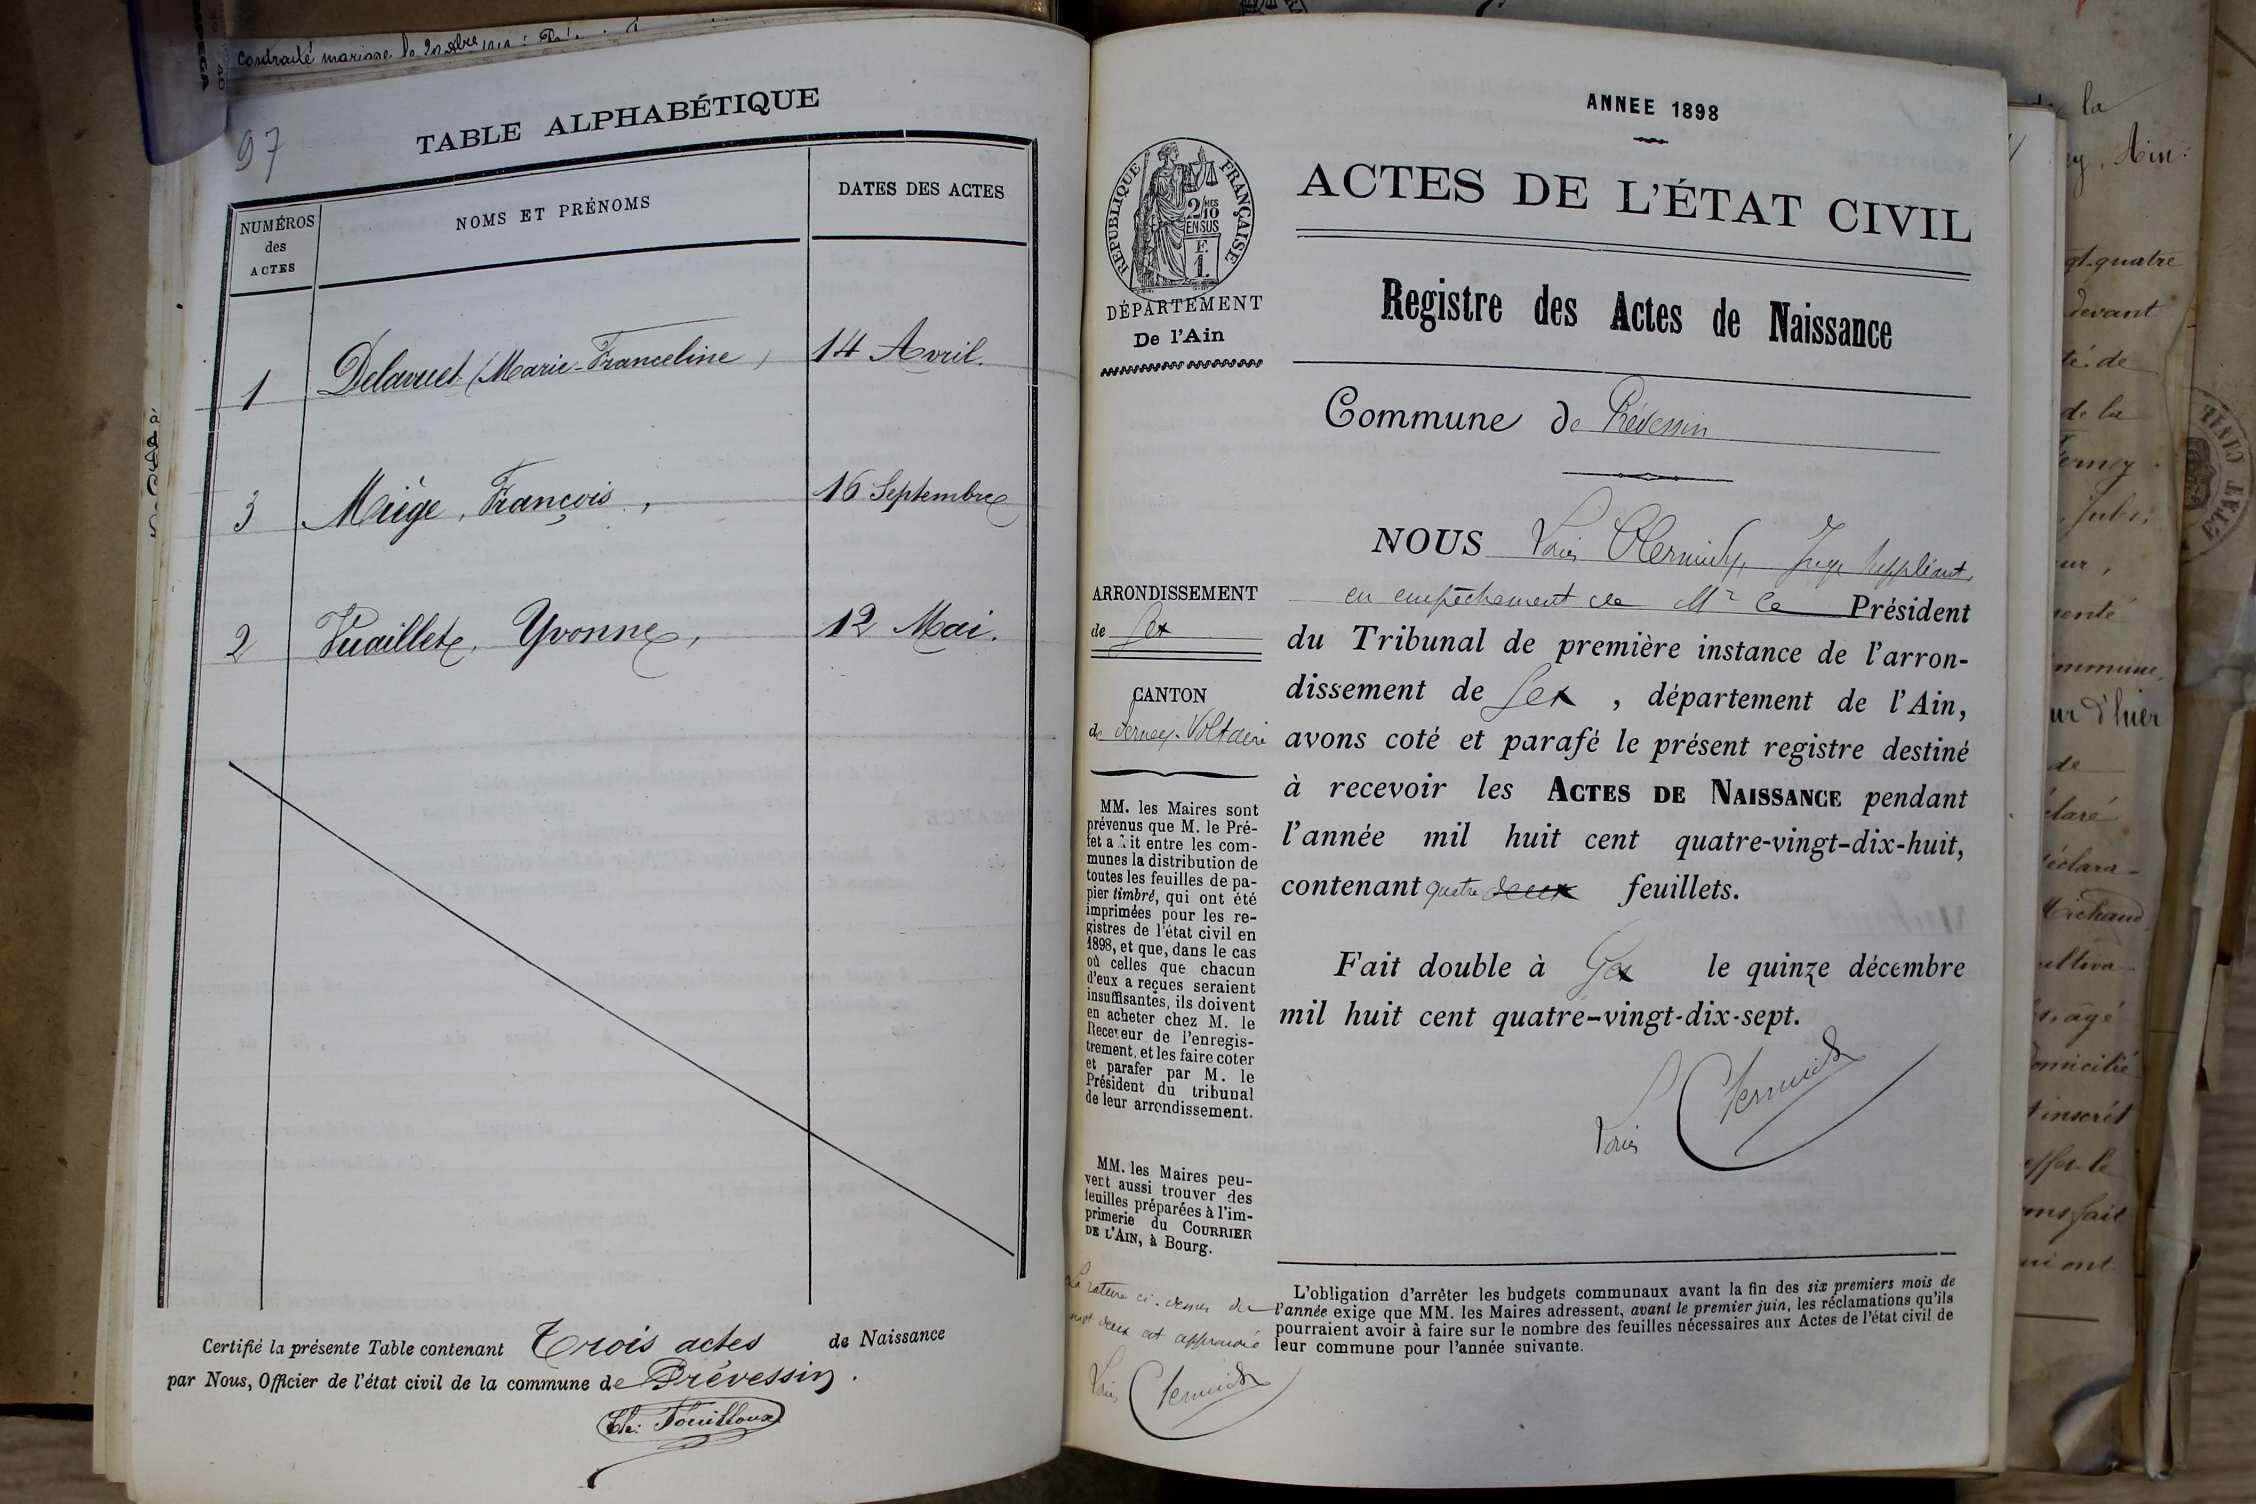 contracté mariage le
97
TABLE ALPHABÉTIQUE
NUMÉROS
des
ACTES
NOMS ET PRÉNOMS
DATES DES ACTES
1 Delavuet (Marie-Franceline) 14 Avril.
3 Miège, François, 16 Septembre
2 Vuaillet, Yvonne, 12 Mai.
Certifié la présente Table contenant Trois actes de Naissance
par Nous, Officier de l'état civil de la commune de Prévessin.
ANNEE 1898
RÉPUBLIQUE FRANÇAISE
2/10
EN SUS
F.
1.
DÉPARTEMENT
De l'Ain
ACTES DE L'ÉTAT CIVIL
Registre des Actes de Naissance
Commune de Prévessin
ARRONDISSEMENT
de Gex
CANTON
de Ferney-Voltaire
MM. les Maires sont
prévenus que M. le Pré-
fet a fait entre les com-
munes la distribution de
toutes les feuilles de pa-
pier timbré, qui ont été
imprimées pour les re-
gistres de l'état civil en
1898, et que, dans le cas
où celles que chacun
d'eux a reçues seraient
insuffisantes, ils doivent
en acheter chez M. le
Receveur de l'enregis-
trement, et les faire coter
et parafer par M. le
Président du tribunal
de leur arrondissement.
MM. les Maires peu-
vent aussi trouver des
feuilles préparées à l'im-
primerie du COURRIER
DE L'AIN, à Bourg.
La rature ci-dessus du
mot deux est approuvée
Louis
NOUS Louis Juge suppléant,
en empêchement de Mr le Président
du Tribunal de première instance de l'arron-
dissement de Gex, département de l'Ain,
avons coté et parafé le présent registre destiné
à recevoir les ACTES DE NAISSANCE pendant
l'année mil huit cent quatre-vingt-dix-huit,
contenant quatre deux feuillets.
Fait double à Gex le quinze décembre
mil huit cent quatre-vingt-dix-sept.
Louis
L'obligation d'arrêter les budgets communaux avant la fin des six premiers mois de
l'année exige que MM. les Maires adressent, avant le premier juin, les réclamations qu'ils
pourraient avoir à faire sur le nombre des feuilles nécessaires aux Actes de l'état civil de
leur commune pour l'année suivante.
la
Ain
quatre
devant
de
de la
Ferney
commune,
d'hier
de
déclara-
domicilié
inscrit
le
fait
ont
ETAT CIVIL